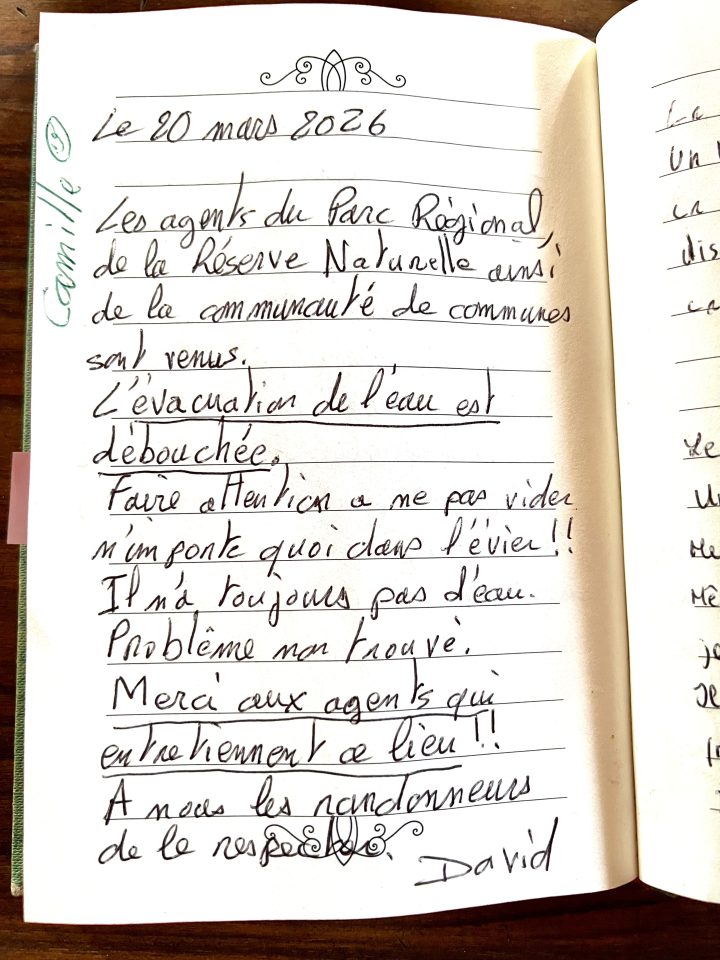 Le 20 mars 2026
Camille
Les agents du Parc Régional,
de la Réserve Naturelle ainsi
de la communauté de communes
sont venus.
L'évacuation de l'eau est
débouchée.
Faire attention a ne pas vider
n'importe quoi dans l'évier!!
Il n'a toujours pas d'eau.
Problème non trouvé.
Merci aux agents qui
entretiennent ce lieu!!
A nous les randonneurs
de le respecter.
David
La
un
dis
Le